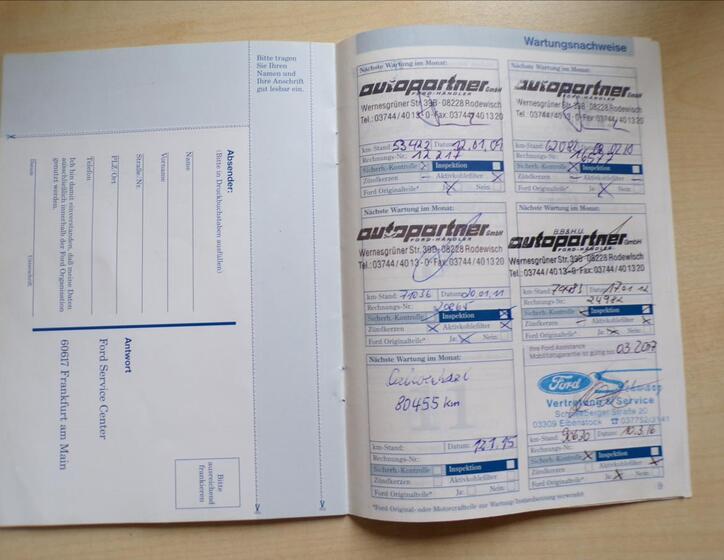 Bitte tragen
Sie Ihren
Namen und
Ihre Anschrift
gut lesbar ein.
Absender:
(Bitte in Druckbuchstaben ausfüllen)
Name
Vorname
Straße/Nr.
PLZ/Ort
Telefon
Ich bin damit einverstanden, daß meine Daten
ausschließlich innerhalb der Ford Organisation
genutzt werden.
Datum
Unterschrift
Antwort
Ford Service Center
60617 Frankfurt am Main
Bitte
ausreichend
frankieren
Wartungsnachweise
Nächste Wartung im Monat:
autopartner GmbH
FORD-HÄNDLER
Wernesgrüner Str. 39B · 08228 Rodewisch
Tel.: 03744/40 13-0 · Fax: 03744/40 13 20
km-Stand: 53422 Datum: 12.01.09
Rechnungs-Nr.: 12217
Sicherh.-Kontrolle Inspektion
Zündkerzen Aktivkohlefilter
Ford Originalteile* Ja: Nein:
Nächste Wartung im Monat:
autopartner GmbH
FORD-HÄNDLER
Wernesgrüner Str. 39B · 08228 Rodewisch
Tel.: 03744/40 13-0 · Fax: 03744/40 13 20
km-Stand: Datum:
Rechnungs-Nr.: 16577
Sicherh.-Kontrolle Inspektion
Zündkerzen Aktivkohlefilter
Ford Originalteile* Ja: Nein:
Nächste Wartung im Monat:
autopartner GmbH
FORD-HÄNDLER
Wernesgrüner Str. 39B · 08228 Rodewisch
Tel.: 03744/40 13-0 · Fax: 03744/40 13 20
km-Stand: 71036 Datum: 20.01.11
Rechnungs-Nr.: 20864
Sicherh.-Kontrolle Inspektion
Zündkerzen Aktivkohlefilter
Ford Originalteile* Ja: Nein:
Nächste Wartung im Monat:
autopartner GmbH
FORD-HÄNDLER
Wernesgrüner Str. 39B · 08228 Rodewisch
Tel.: 03744/40 13-0 · Fax: 03744/40 13 20
km-Stand: Datum: 17.01.12
Rechnungs-Nr.: 24982
Sicherh.-Kontrolle Inspektion
Zündkerzen Aktivkohlefilter
Ford Originalteile* Ja: Nein:
Nächste Wartung im Monat:
Ölwechsel
80455 km
km-Stand: Datum: 12.1.15
Rechnungs-Nr.:
Sicherh.-Kontrolle Inspektion
Zündkerzen Aktivkohlefilter
Ford Originalteile* Ja: Nein:
Ihre Ford Assistance
Mobilitätsgarantie ist gültig bis 03.2017
Ford
Vertretung & Service
Schneeberger Straße 20
03309 Eibenstock ☎ 037752/3141
km-Stand: 90620 Datum: 10.3.16
Rechnungs-Nr.:
Sicherh.-Kontrolle Inspektion
Zündkerzen Aktivkohlefilter
Ford Originalteile* Ja: Nein:
*Ford Original- oder Motorcraftteile zur Wartung/Instandsetzung verwendet